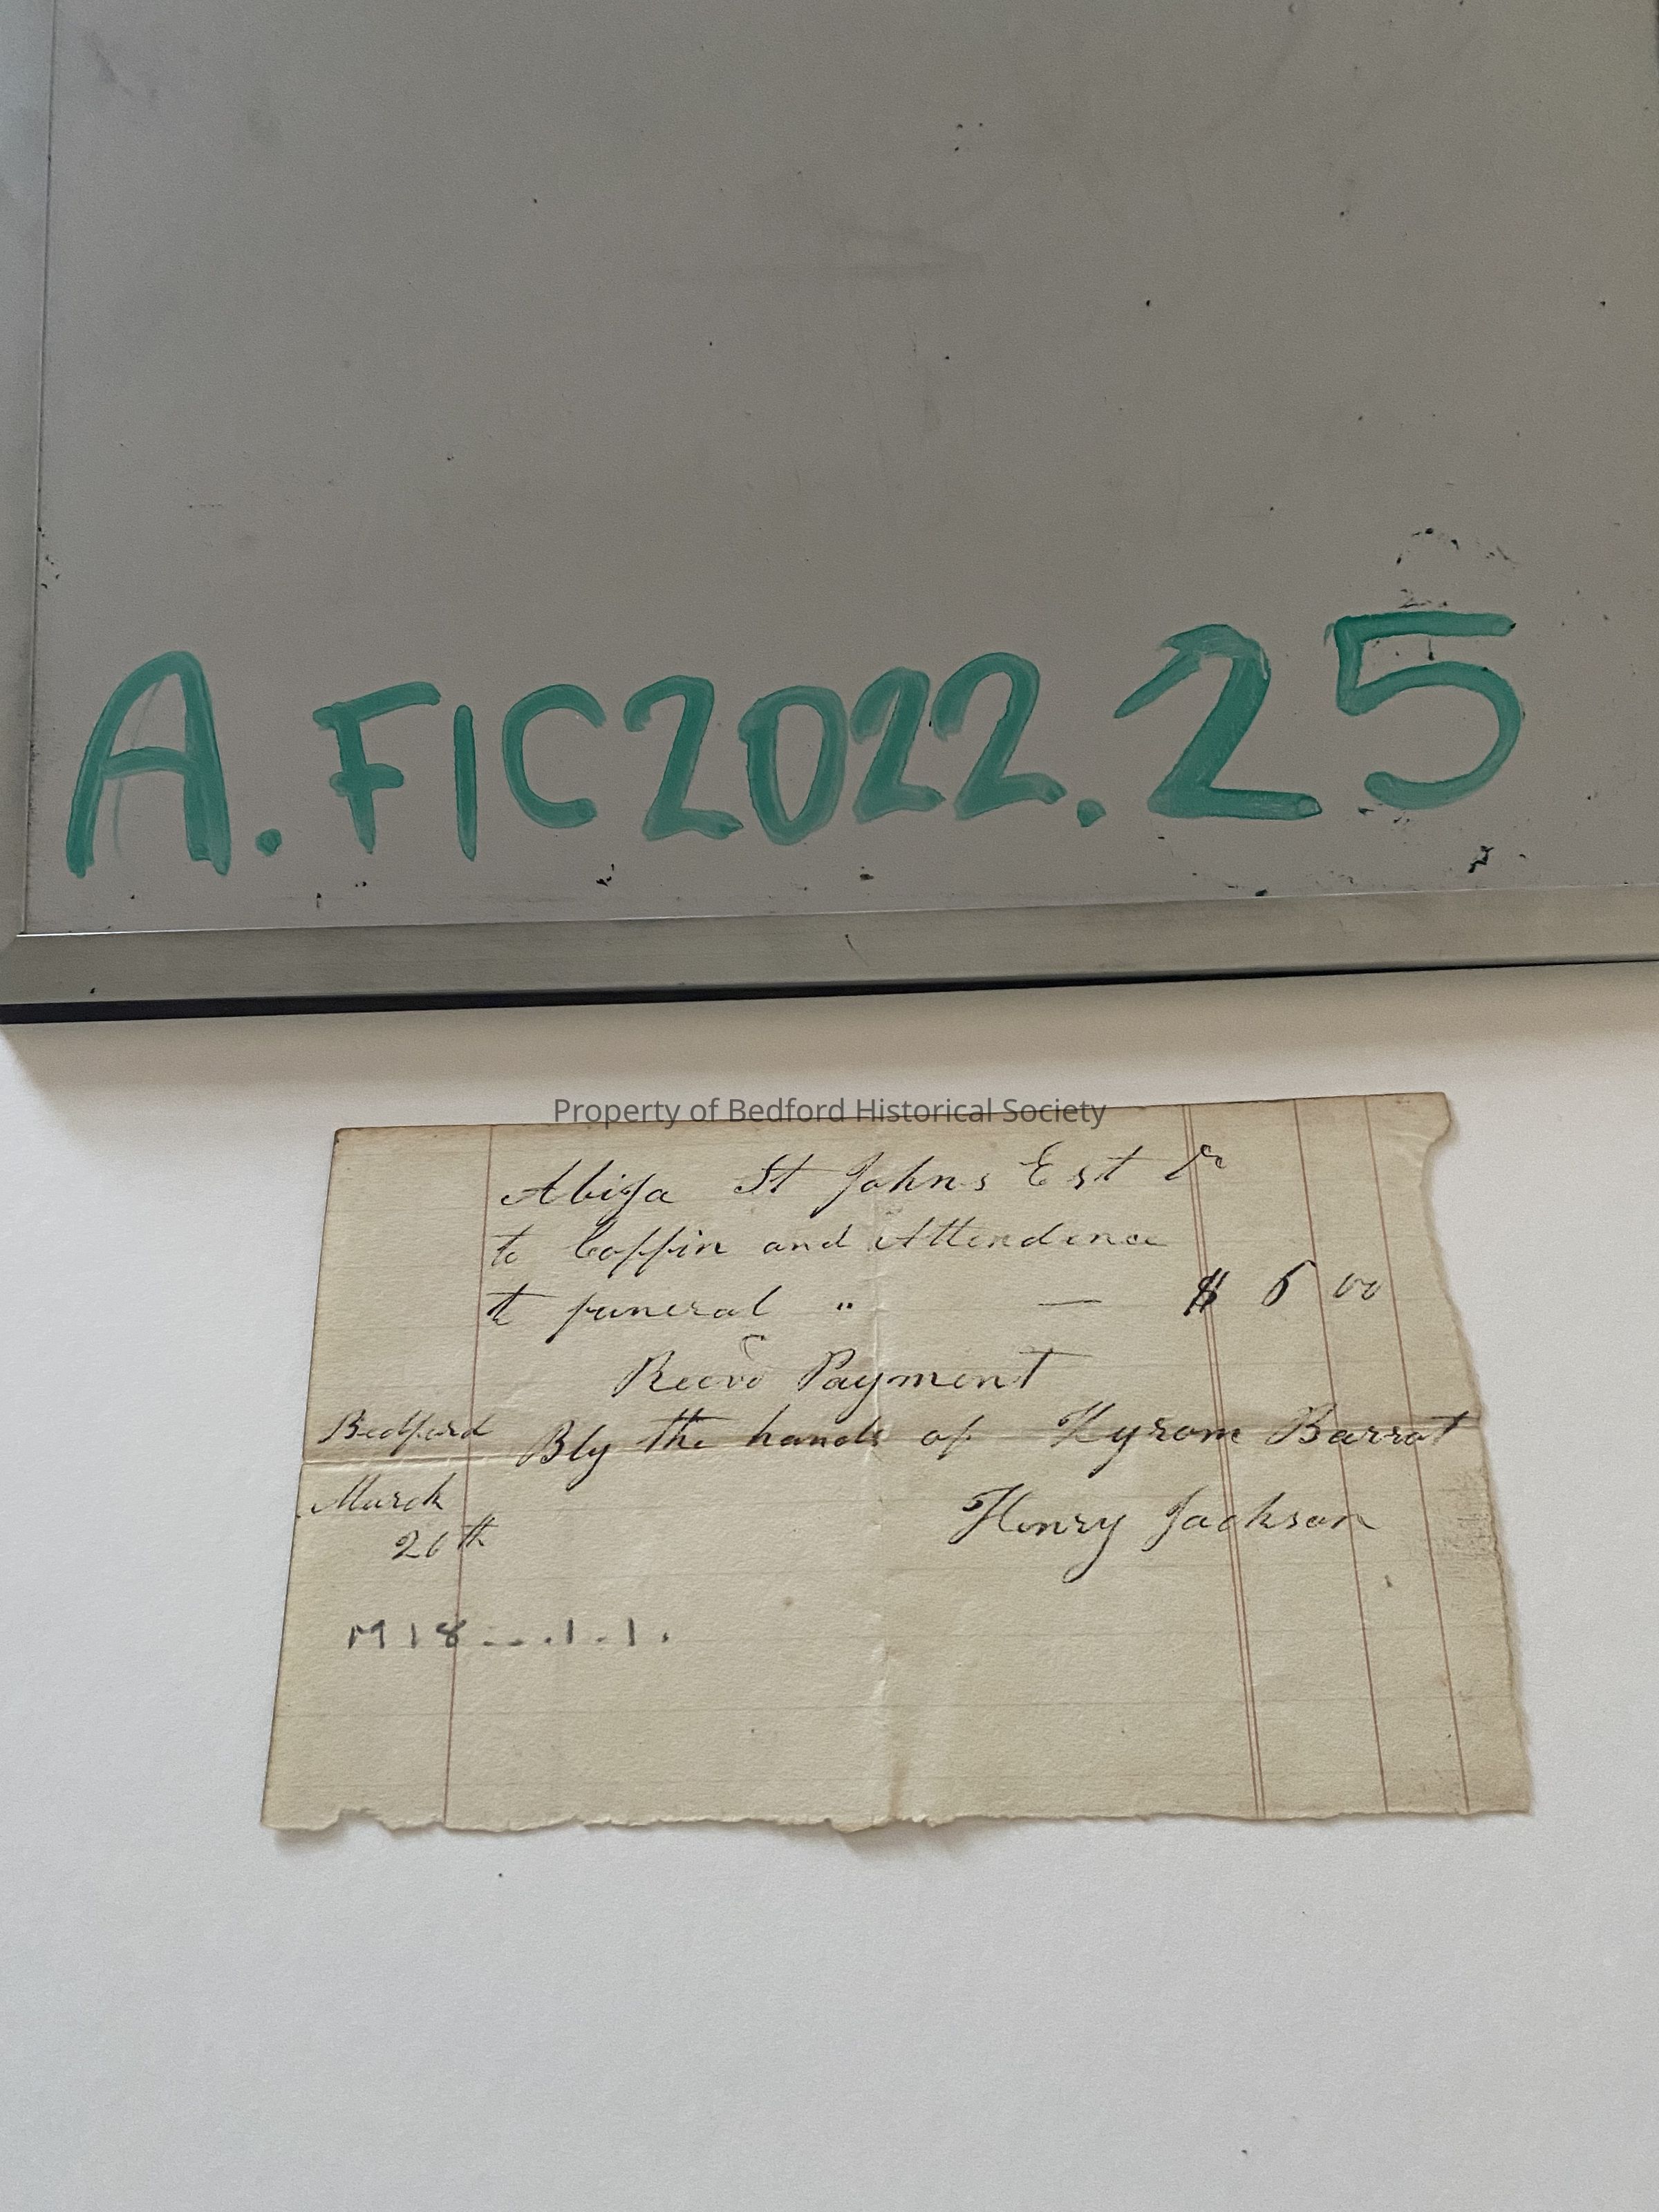 A.FIC2022.25
Property of Bedford Historical Society
Abija St Johns Est Dr
to Coffin and Attendence
to funeral " — $ 6 00
Recvd Payment
Bedford Bly the hands of Hyrom Barrot
March Henry Jackson
26th
M18--.1-1.